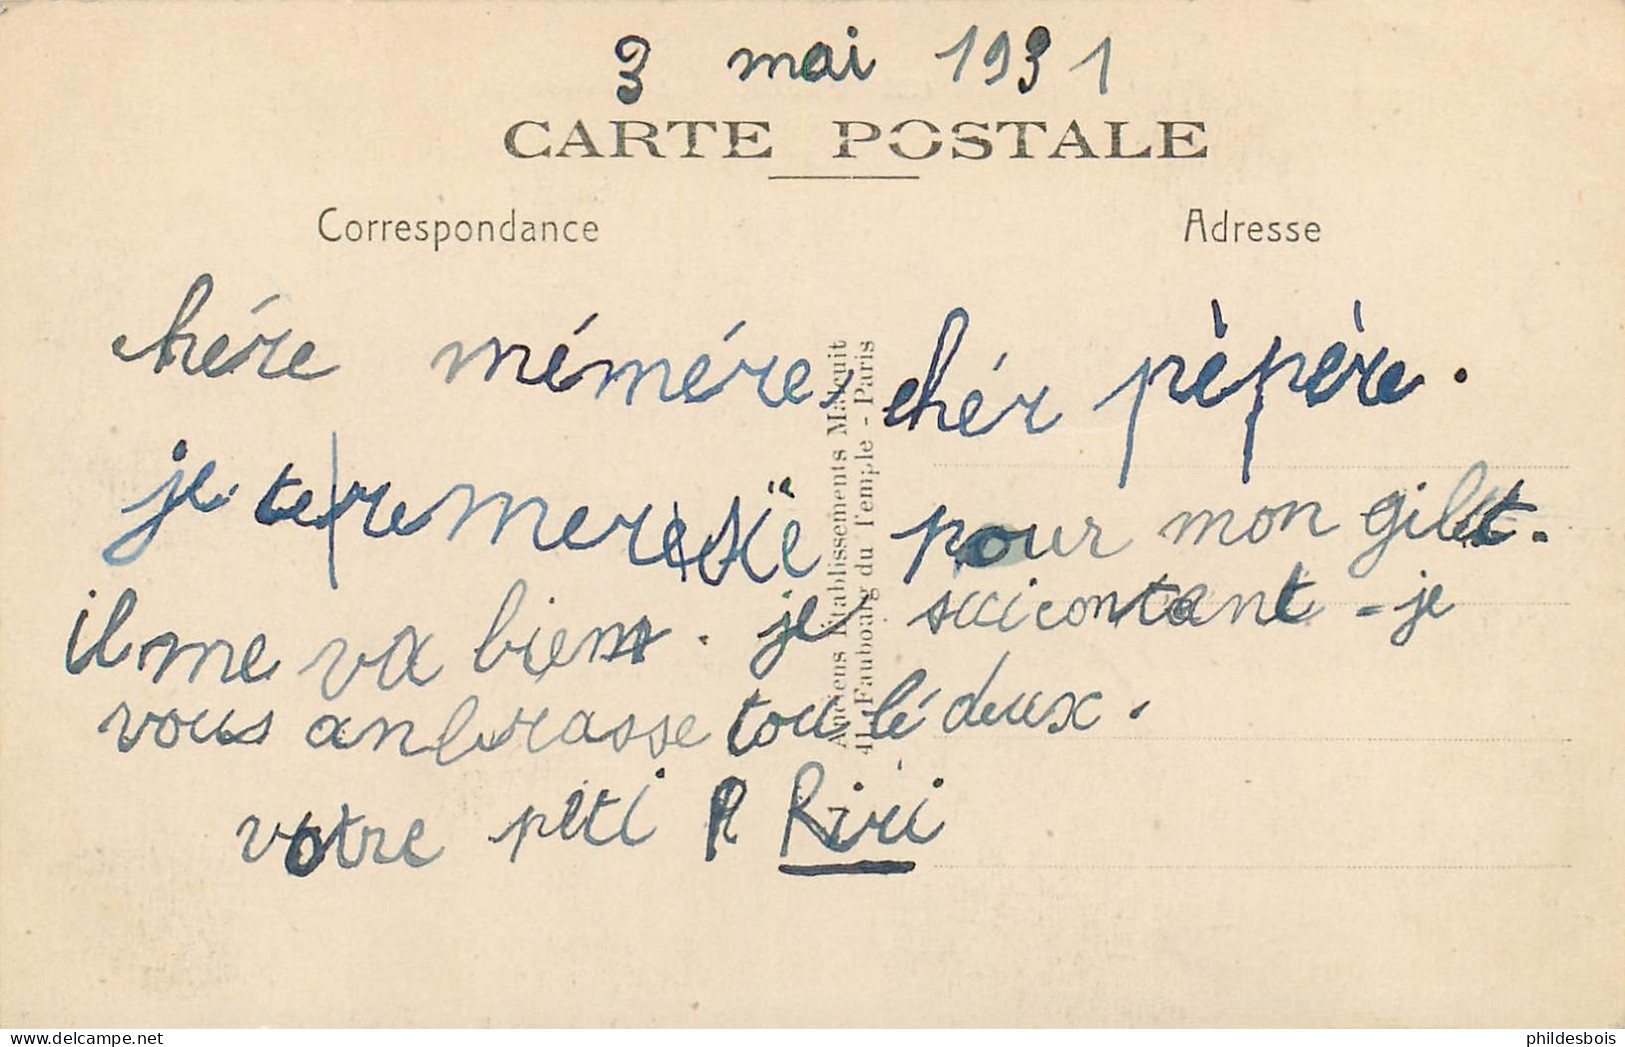 3 mai 1931
CARTE POSTALE
Correspondance
Adresse
chére mémére, chér pèpère.
je te remercïe pour mon gilet.
il me va bien. je suicontant - je
vous anbrasse tou lé deux.
votre peti R Riri
Anciens Établissements Malcuit
41, Faubourg du Temple - Paris
phildesbois